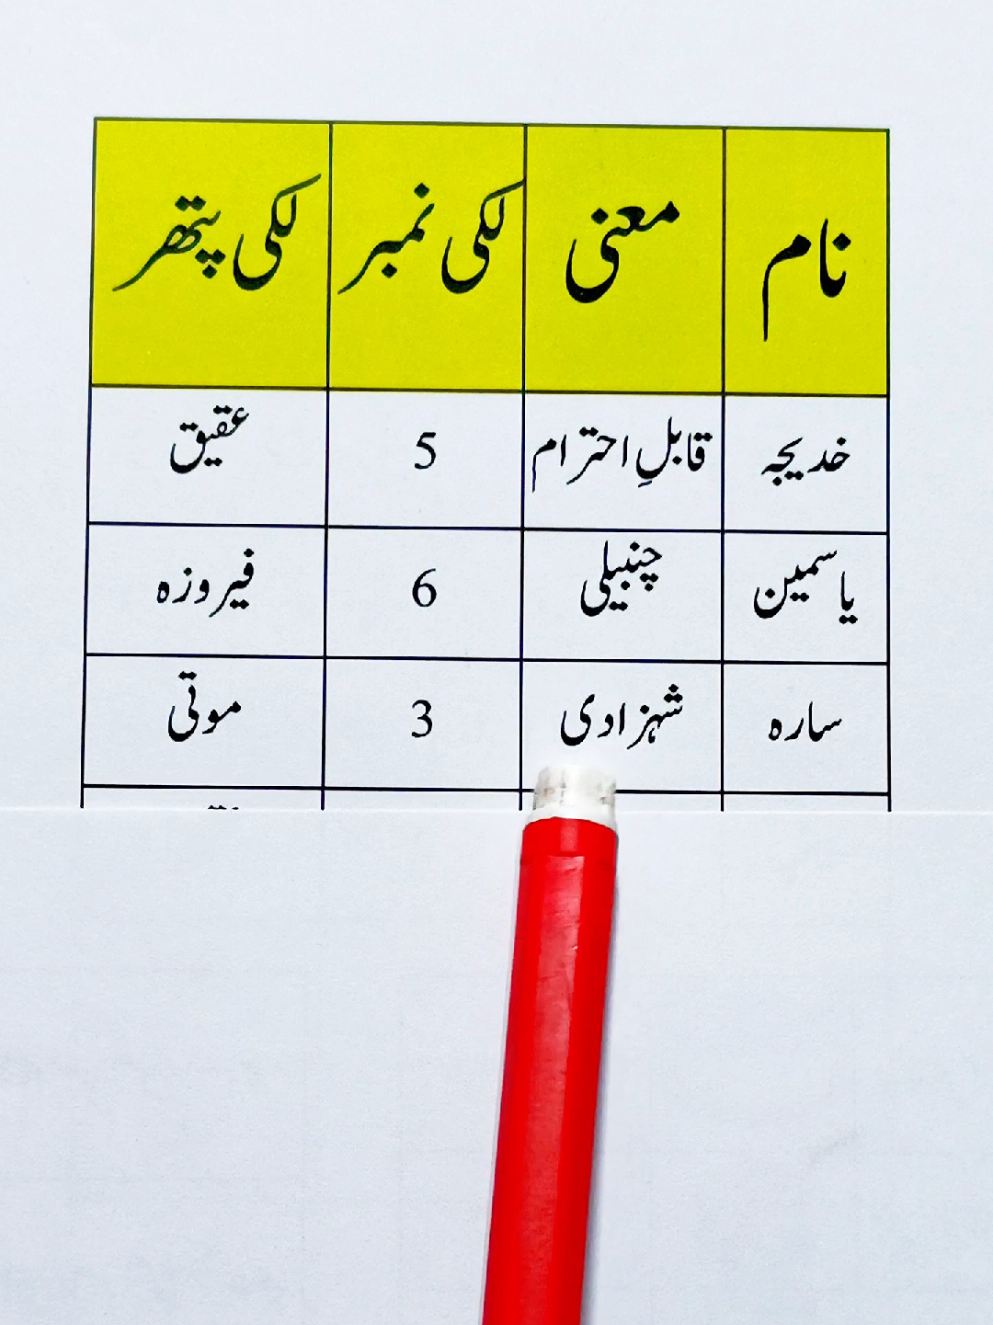 نام معنی لکی نمبر لکی پتھر
خدیجہ قابلِ احترام 5 عقیق
یاسمین چنبیلی 6 فیروزہ
سارہ شہزادی 3 موتی